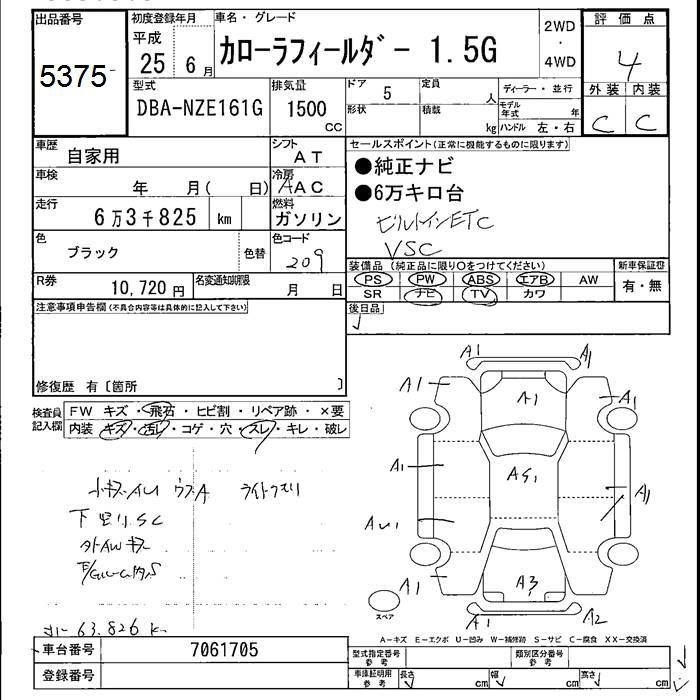 出品番号
5375
初度登録年月
平成
25 6 月
車名・グレード
カローラフィールダー 1.5G
2WD
・
4WD
評価点
4
外装 内装
C C
型式
DBA-NZE161G
排気量
1500
CC
ドア 5
形状
定員
人
積載
kg
ディーラー・並行
モデル年式 年
ハンドル 左・右
車歴
自家用
シフト
AT
車検
年 月( 日)
冷房
AAC
走行
6万3千825 km
燃料
ガソリン
色
ブラック
色替
色コード
209
R券
10,720円
名変通知期限
月 日
セールスポイント(正常に機能するものに限ります)
●純正ナビ
●6万キロ台
ビルトインETC
VSC
装備品(純正品に限り○をつけてください)
PS PW ABS エアB AW
SR ナビ TV カワ
新車保証書
有・無
後日品
注意事項申告欄(不具合内容等は具体的に記入して下さい)
修復歴 有〔箇所 〕
検査員記入欄
FW キズ・飛石・ヒビ割・リペア跡・×要
内装 キズ・汚レ・コゲ・穴・スレ・キレ・破レ
小キズAU ライトクスリ
下 SC
AW キズ
63,826 K
A1 A1
A1 A1 A1
A1 A1
AU1
A1 A3
A1 A2
スペア
A-キズ E-エクボ U-凹み W-補修跡 S-サビ C-腐食 XX-交換済
車台番号 7061705
登録番号
型式指定番号
参考
類別区分番号
参考
車庫証明用
参考
長さ cm 幅 cm 高さ cm